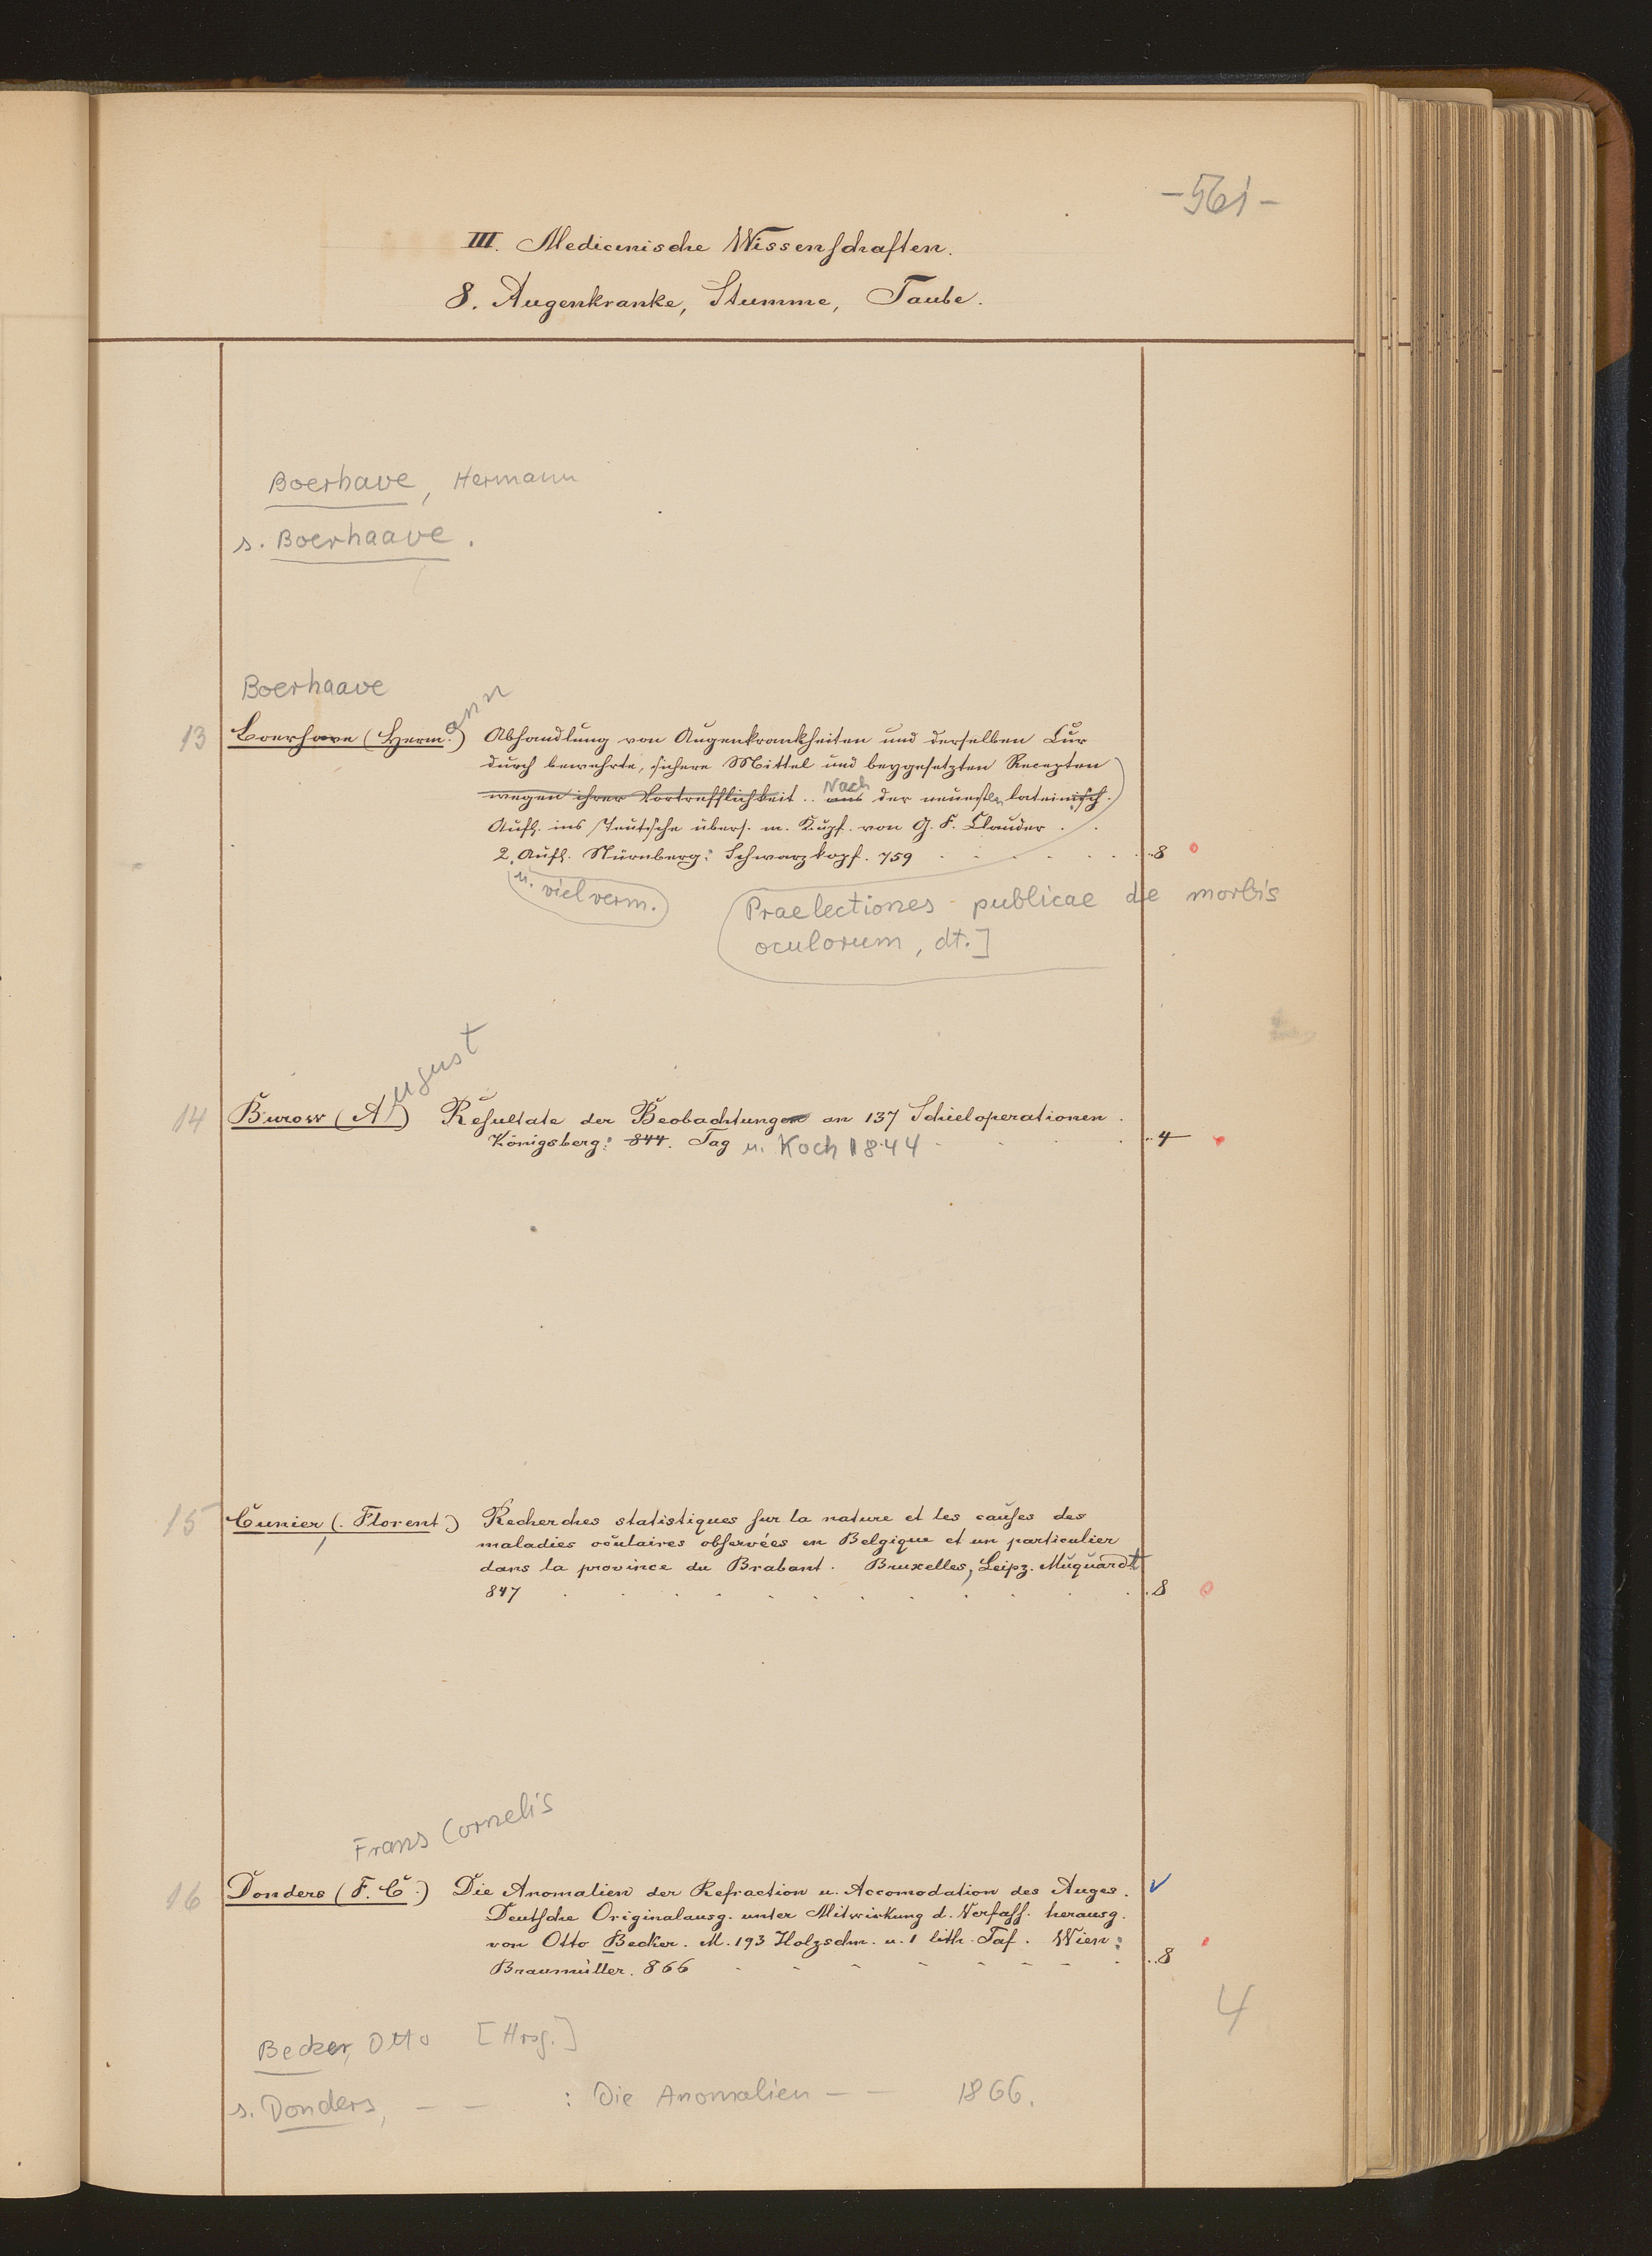 -561-
III. Medicinische Wissenschaften.
8. Augenkranke, Stumme, Taube.
Boerhave, Hermann
s. Boerhaave.
Boerhaave
ann
13 Boerhave (Herm.) Abhandlung von Augenkrankheiten und derselben Cur
durch bewehrte, sichere Mittel und beygesetzten Recepten
Nach
wegen ihrer Vortrefflichkeit .. aus der neuesten lateinisch.
Aufl. ins Teutsche übers. m. Kupf. von G. F. Clauder .
2. Aufl. Nürnberg: Schwarzkopf. 759 . . . . . . 8
u. viel verm.
Praelectiones publicae de morbis
oculorum, dt.]
ugust
14 Burow (A.) Resultate der Beobachtungen an 137 Schieloperationen.
Königsberg: 844. Tag u. Koch 1844 . . . 4
15 Cunier, (Florent) Recherches statistiques sur la nature et les causes des
maladies oculaires observées en Belgique et un particulier
dans la province du Brabant. Bruxelles, Leipz. Muquardt
847 . . . . . . . . . . . . 8
Frans Cornelis
16 Donders (F. C.) Die Anomalien der Refraction u. Accomodation des Auges.
Deutsche Originalausg. unter Mitwirkung d. Verfass. herausg.
von Otto Becker. M. 193 Holzschn. u. 1 lith. Taf. Wien:
Braumüller. 866 - - - - - - - . 8
4
Becker, Otto [Hrsg.]
s. Donders, — — : Die Anomalien — — 1866.